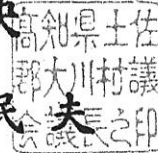 高知県土佐
郡大川村議
会議長之印
夫